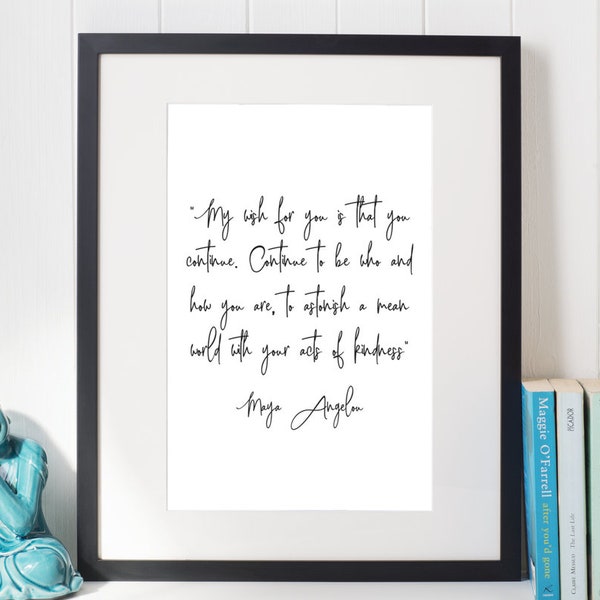 "My wish for you is that you
continue. Continue to be who and
how you are, to astonish a mean
world with your acts of kindness"
Maya Angelou
Maggie O'Farrell
after you'd gone
PICADOR
The Last Life